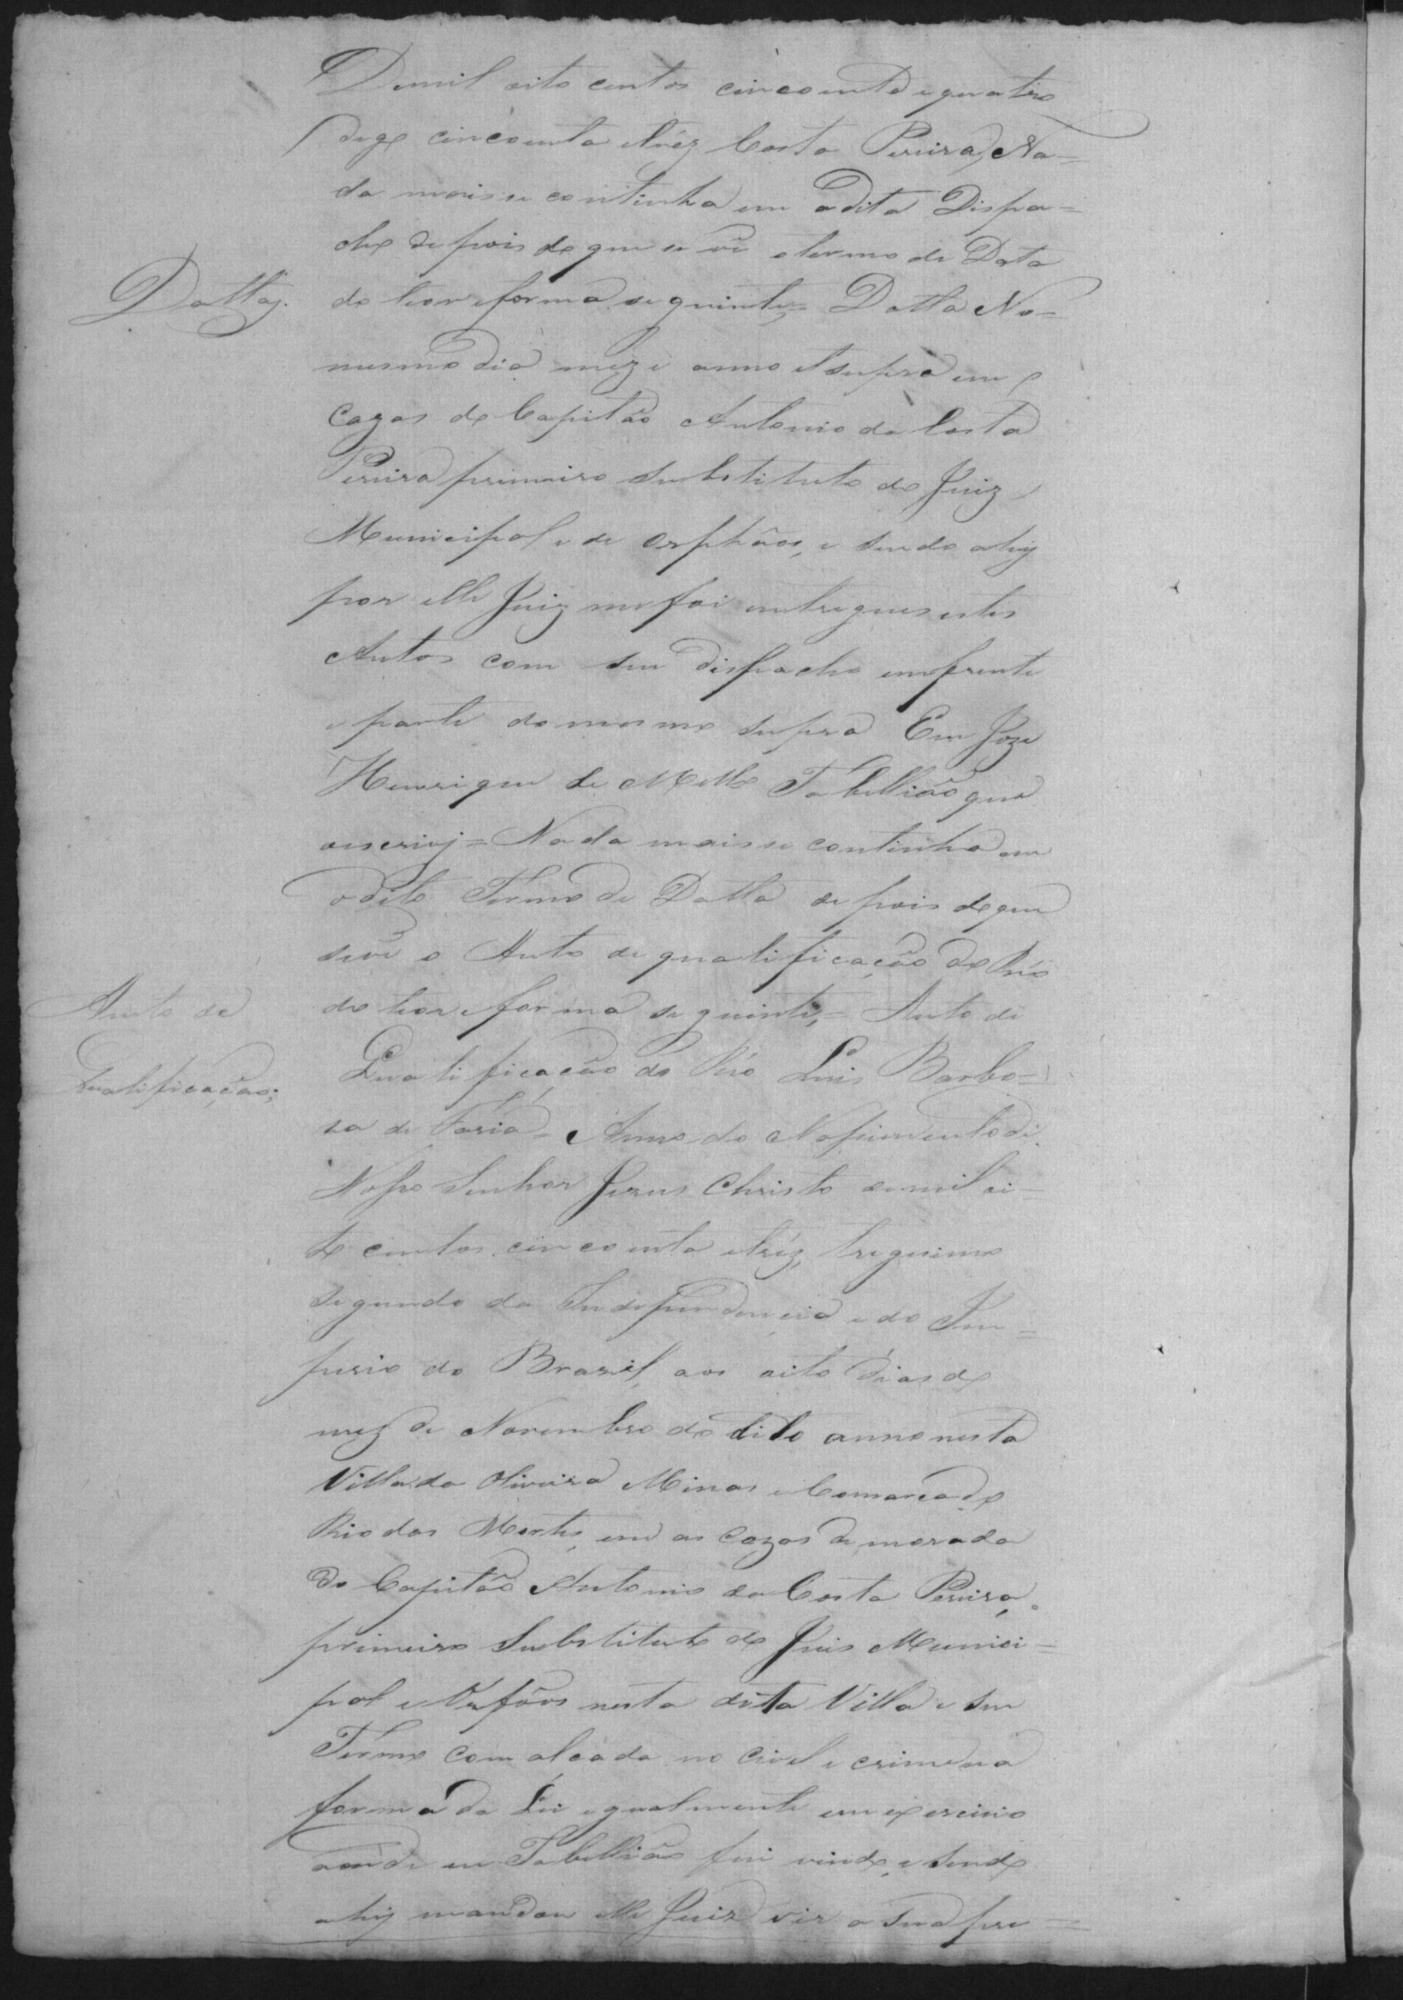 De mil oito centos cincoenta e quatro
digo cincoenta e tréz Costa Pereira, Na=
da mais se continha em o dito Dispa=
cho depois do que se vê o termo de Data
Datta;
do teor e forma seguinte, = Datta No=
mesmo dia mez e anno et supra em
cazas do Capitão Antonio da Costa
Pereira primeiro substituto do Juiz
Municipal e de Orphãos, e sendo ahy
por elle Juiz me foi entregues estes
Autos com seu dispacho em frente
e parte do mesmo supra Eu Joze
Henrique de Mello Tabellião que
oscrivj = Nada mais se continha em
o dito Termo de Datta depois do que
se vê o Auto de qualificação do Réo
Auto de
do teor e forma seguinte, = Auto de
Qualificação;
Qualificação do Réo Luis Barbo=
za de Faria = Anno do Nascimento de
Nosso Senhor Jesus Christo de mil oi=
to centos cincoenta e tréz, trigesimo
segundo da Independencia e do Im=
perio do Brazil, aos oito dias do
mez de Novembro do dito anno nesta
Villa da Oliveira Minas e Comarca do
Rio das Mortes, em as cazas de morada
do Capitão Antonio da Costa Pereira,
primeiro Substituto do Juis Munici=
pal e Orfãos nesta dita Villa e seu
Termo com alçada no Civel e crime na
forma da Lei egualmente em exercicio
aonde eu Tabellião fui vindo, e sendo
ahy mandou elle Juiz vir a sua pre=